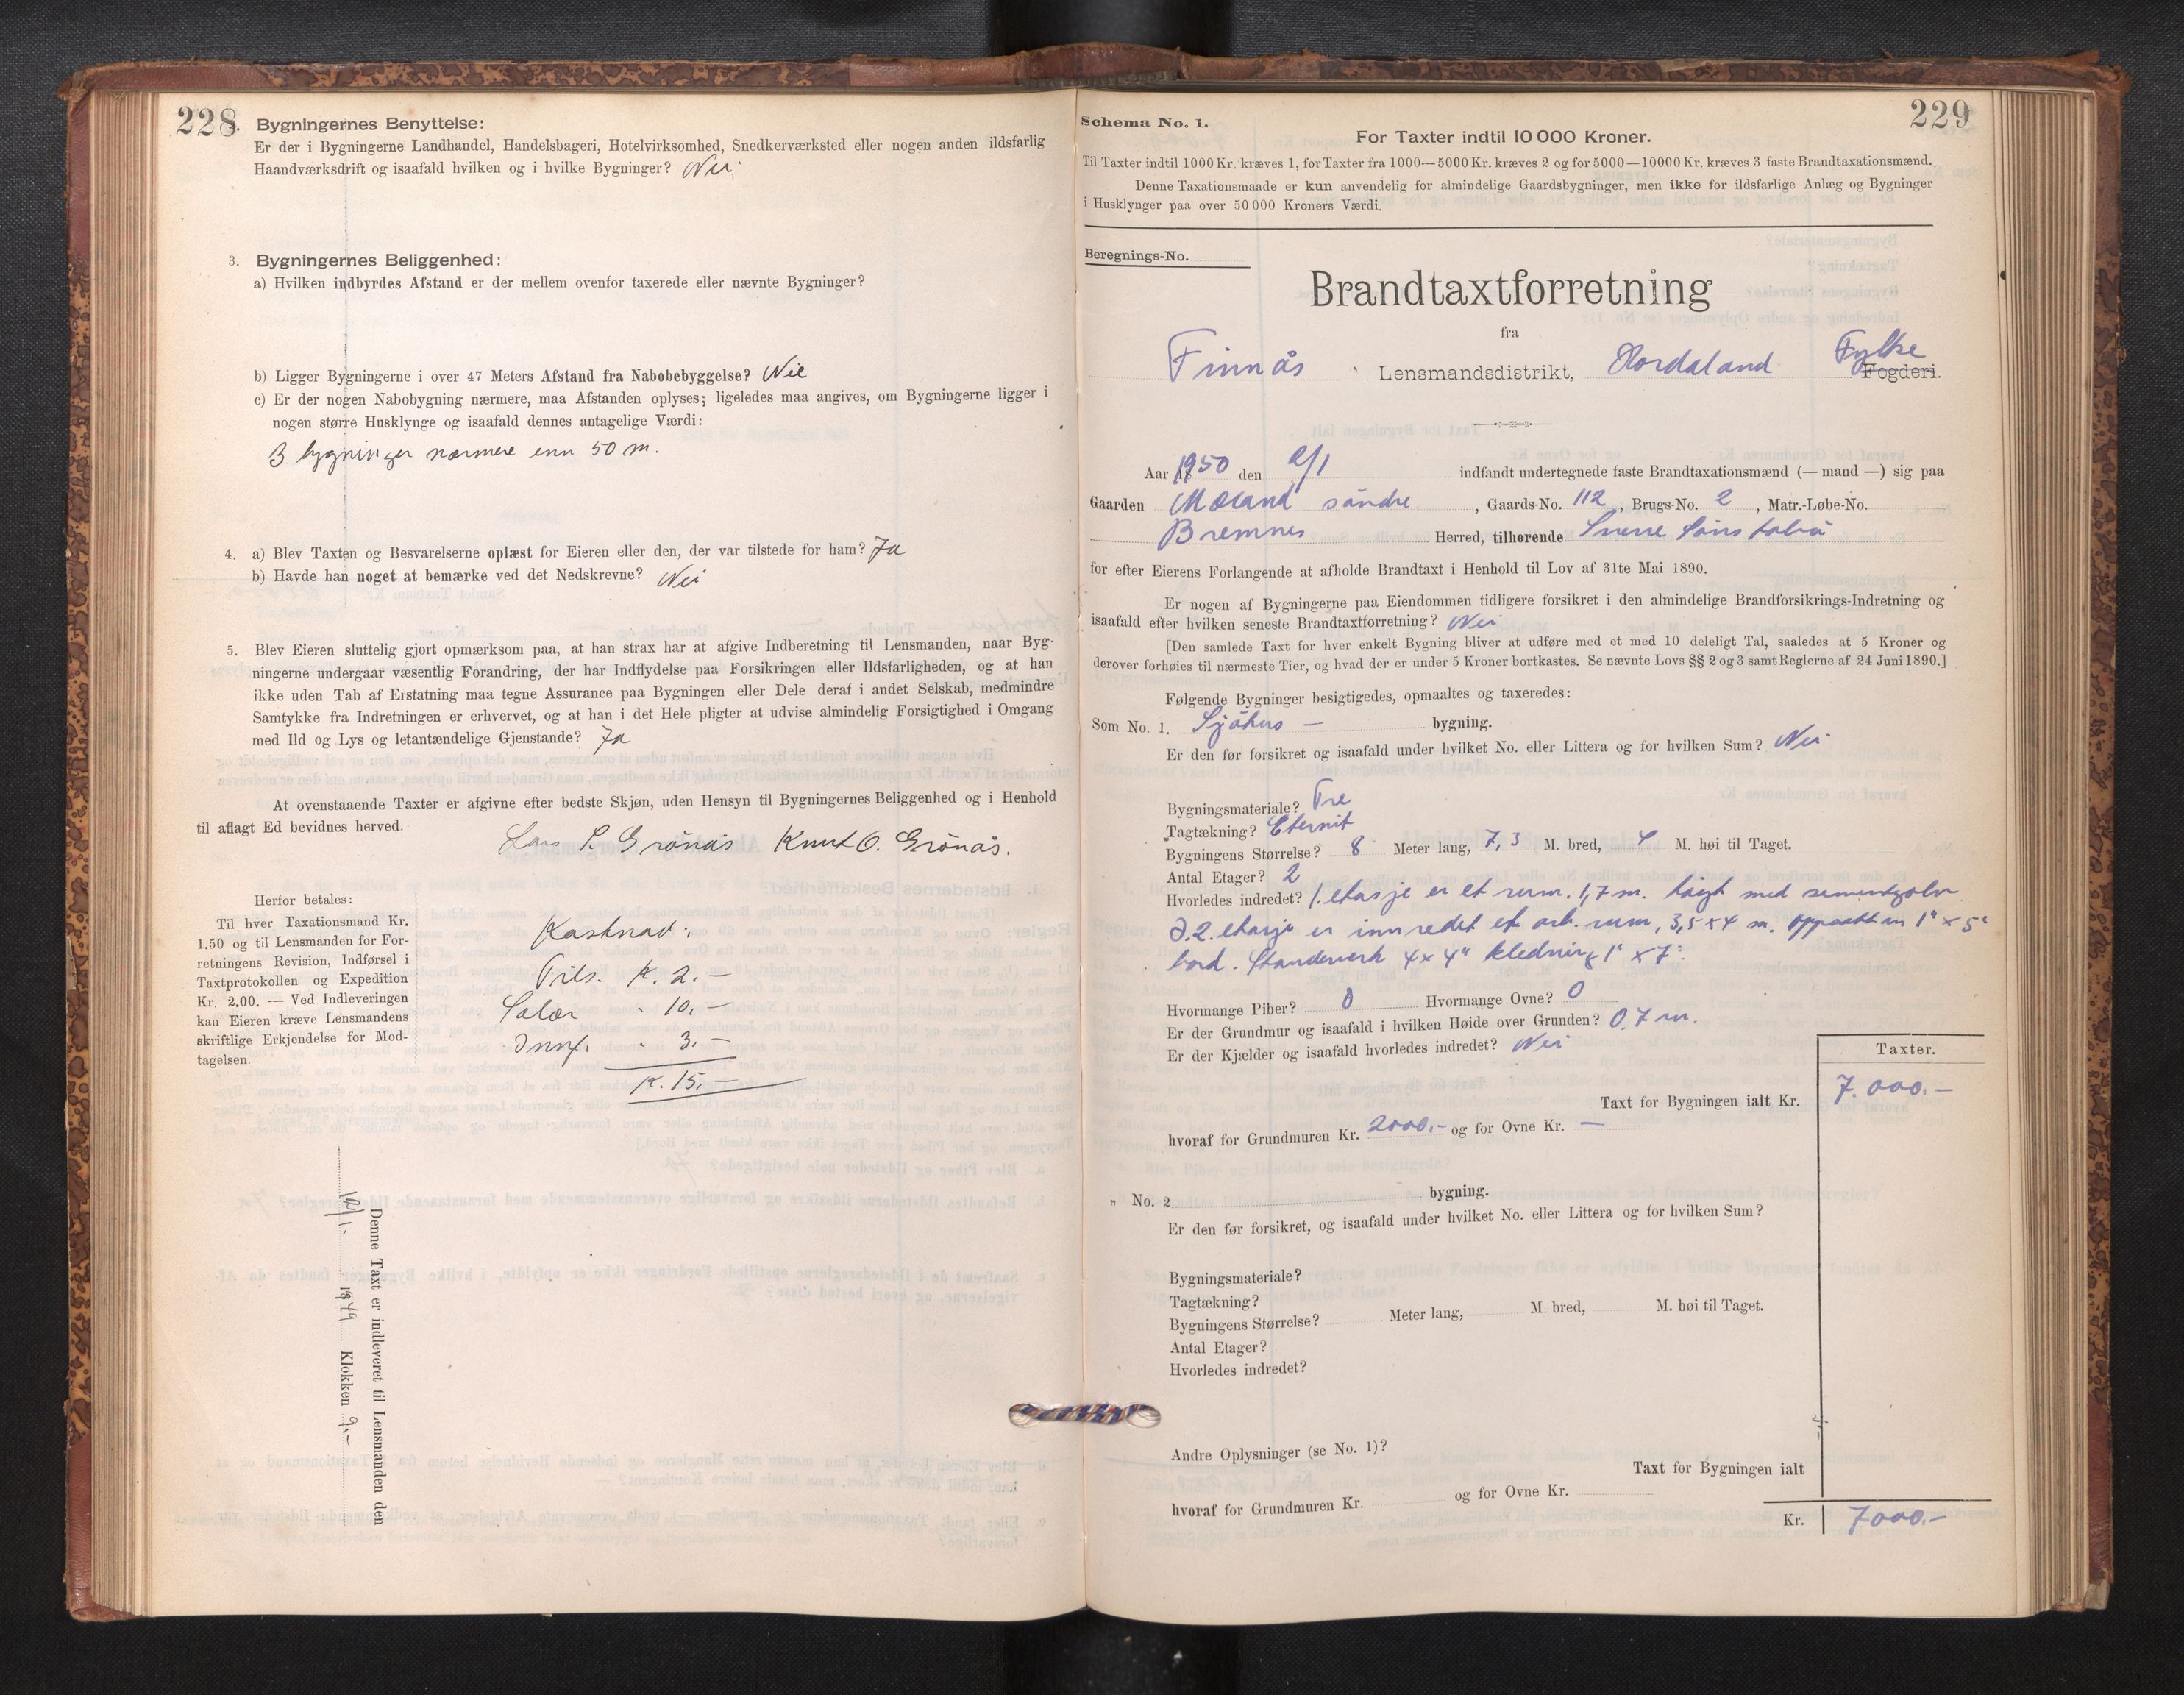 228
Bygningernes Benyttelse:
Er der i Bygningerne Landhandel, Handelsbageri, Hotelvirksomhed, Snedkerværksted eller nogen anden ildsfarlig
Haandværksdrift og isaafald hvilken og i hvilke Bygninger? Nei
3. Bygningernes Beliggenhed:
a) Hvilken indbyrdes Afstand er der mellem ovenfor taxerede eller nævnte Bygninger?
b) Ligger Bygningerne i over 47 Meters Afstand fra Nabobebyggelse? Nei
c) Er der nogen Nabobygning nærmere, maa Afstanden oplyses; ligeledes maa angives, om Bygningerne ligger i
nogen større Husklynge og isaafald dennes antagelige Værdi:
3 bygninger nærmere enn 50 m.
4. a) Blev Taxten og Besvarelserne oplæst for Eieren eller den, der var tilstede for ham? Ja
b) Havde han noget at bemærke ved det Nedskrevne? Nei
5. Blev Eieren sluttelig gjort opmærksom paa, at han strax har at afgive Indberetning til Lensmanden, naar Byg-
ningerne undergaar væsentlig Forandring, der har Indflydelse paa Forsikringen eller Ildsfarligheden, og at han
ikke uden Tab af Erstatning maa tegne Assurance paa Bygningen eller Dele deraf i andet Selskab, medmindre
Samtykke fra Indretningen er erhvervet, og at han i det Hele pligter at udvise almindelig Forsigtighed i Omgang
med Ild og Lys og letantændelige Gjenstande? Ja
At ovenstaaende Taxter er afgivne efter bedste Skjøn, uden Hensyn til Bygningernes Beliggenhed og i Henhold
til aflagt Ed bevidnes herved.
Lars L. Grönås Knut O. Grönås.
Herfor betales:
Til hver Taxationsmand Kr.
1.50 og til Lensmanden for For-
retningens Revision, Indførsel i
Taxtprotokollen og Expedition
Kr. 2.00. — Ved Indleveringen
kan Eieren kræve Lensmandens
skriftlige Erkjendelse for Mod-
tagelsen.
Kostnad:
Tils. K. 2.—
Salær " 10.—
Innf. " 3.—
K. 15.—
Denne Taxt er indleveret til Lensmanden den
1949 Klokken 9.-
229
Schema No. 1.
For Taxter indtil 10 000 Kroner.
Til Taxter indtil 1000 Kr. kræves 1, for Taxter fra 1000—5000 Kr. kræves 2 og for 5000—10000 Kr. kræves 3 faste Brandtaxationsmænd.
Denne Taxationsmaade er kun anvendelig for almindelige Gaardsbygninger, men ikke for ildsfarlige Anlæg og Bygninger
i Husklynger paa over 50 000 Kroners Værdi.
Beregnings-No.
Brandtaxtforretning
fra
Finnås Lensmandsdistrikt, Hordaland Fylke Fogderi.
Aar 1950 den 2/1 indfandt undertegnede faste Brandtaxationsmænd (— mand —) sig paa
Gaarden Mæland söndre, Gaards-No. 112, Brugs-No. 2, Matr.-Løbe-No.
Bremnes Herred, tilhørende
for efter Eierens Forlangende at afholde Brandtaxt i Henhold til Lov af 31te Mai 1890.
Er nogen af Bygningerne paa Eiendommen tidligere forsikret i den almindelige Brandforsikrings-Indretning og
isaafald efter hvilken seneste Brandtaxtforretning? Nei
[Den samlede Taxt for hver enkelt Bygning bliver at udføre med et med 10 deleligt Tal, saaledes at 5 Kroner og
derover forhøies til nærmeste Tier, og hvad der er under 5 Kroner bortkastes. Se nævnte Lovs §§ 2 og 3 samt Reglerne af 24 Juni 1890.]
Følgende Bygninger besigtigedes, opmaaltes og taxeredes:
Som No. 1. Sjöhus — bygning.
Er den før forsikret og isaafald under hvilket No. eller Littera og for hvilken Sum? Nei
Bygningsmateriale? Tre
Tagtækning? Eternit
Bygningens Størrelse? 8 Meter lang, 7,3 M. bred, 4 M. høi til Taget.
Antal Etager? 2
Hvorledes indredet? 1. etasje er et rum. 1,7 m. högt med sementgolv
I 2. etasje er innredet et arb. rum, 3,5 x 4 m. oppsatt m 1" x 5"
bord. Standerverk 4 x 4" kledning 1" x 7".
Hvormange Piber? 0 Hvormange Ovne? 0
Er der Grundmur og isaafald i hvilken Høide over Grunden? 0,7 m.
Er der Kjælder og isaafald hvorledes indredet? Nei
Taxter.
Taxt for Bygningen ialt Kr. 7.000.—
hvoraf for Grundmuren Kr. 2000.- og for Ovne Kr. —
" No. 2 bygning.
Er den før forsikret, og isaafald under hvilket No. eller Littera og for hvilken Sum?
Bygningsmateriale?
Tagtækning?
Bygningens Størrelse? Meter lang, M. bred, M. høi til Taget.
Antal Etager?
Hvorledes indredet?
Andre Oplysninger (se No. 1)?
Taxt for Bygningen ialt
hvoraf for Grundmuren Kr. og for Ovne Kr.
Kr. 7000.-